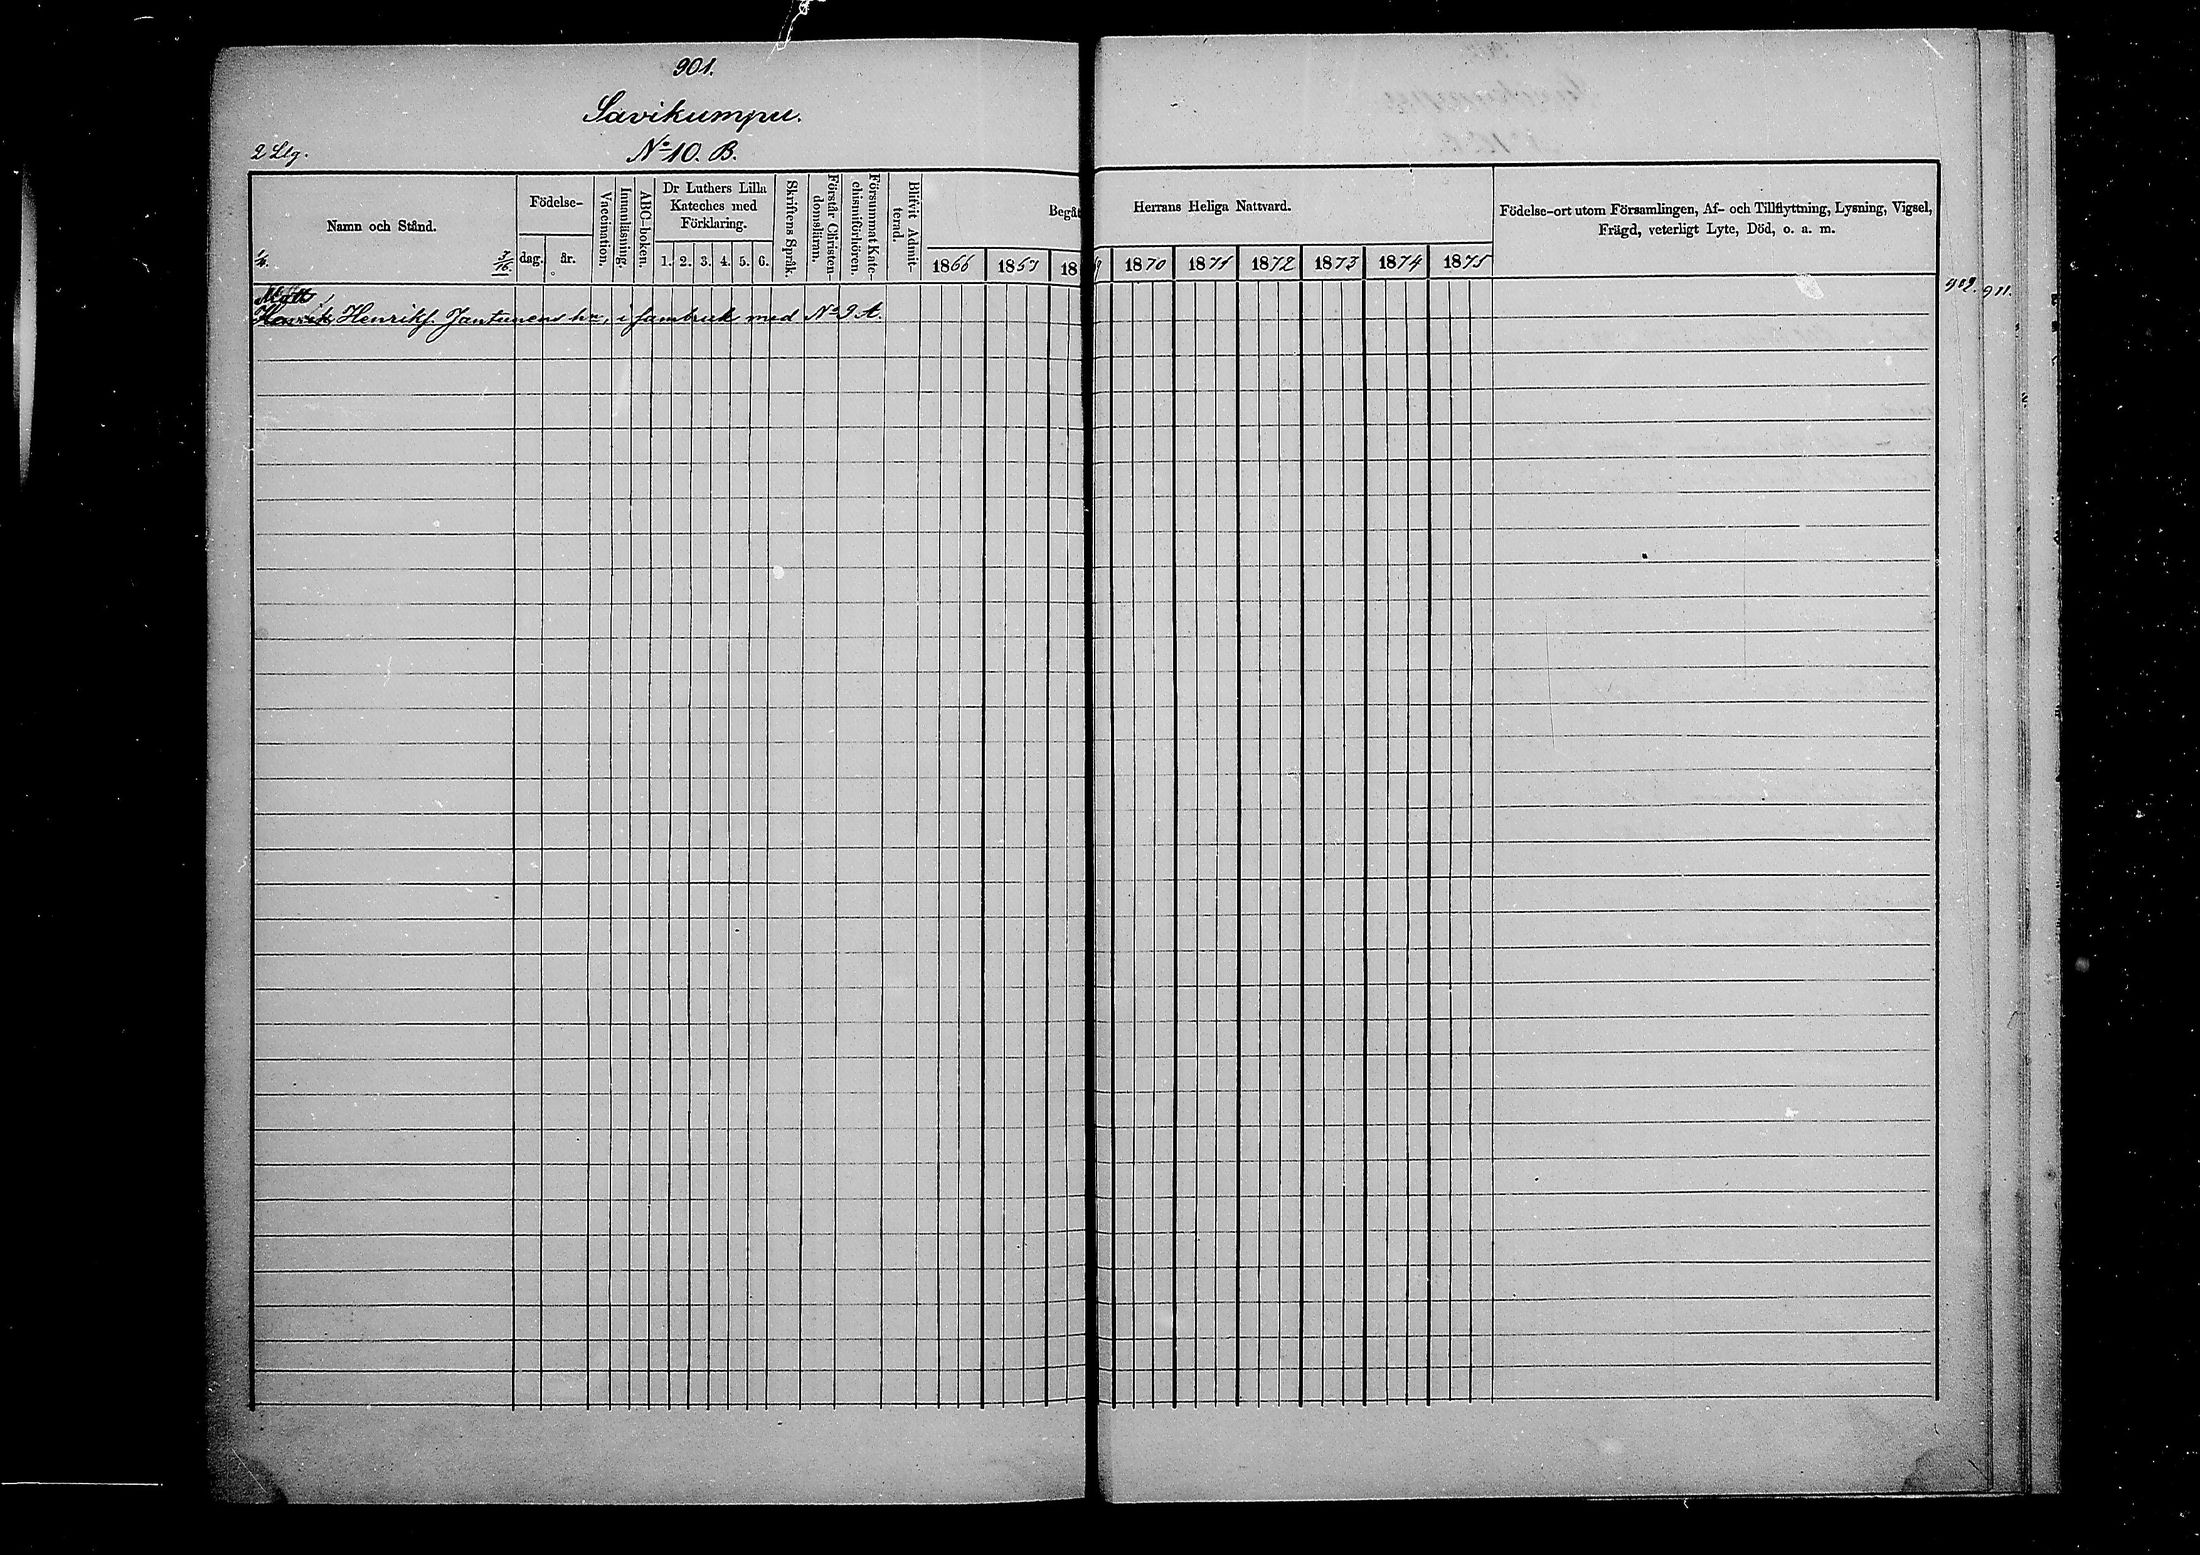 901.
Savikumpu.
2 Llg.
No 10. B.
Namn och Stånd.
Födelse-
dag.
år.
Vaccination.
Innanläsning.
ABC-boken.
Dr Luthers Lilla
Kateches med
Förklaring.
1. 2. 3. 4. 5. 6.
Skriftens Språk.
Förstår Christen-
domsläran.
Försummat Kate-
chismiförhören.
Blifvit Admit-
terad.
Begåt
Herrans Heliga Nattvard.
1866 1867 18
1870 1871 1872 1873 1874 1875
Födelse-ort utom Församlingen, Af- och Tillflyttning, Lysning, Vigsel,
Frägd, veterligt Lyte, Död, o. a. m.
902. 911.
Matts
Henrikss. Jantunens hn, i sambruk med No 9 A.